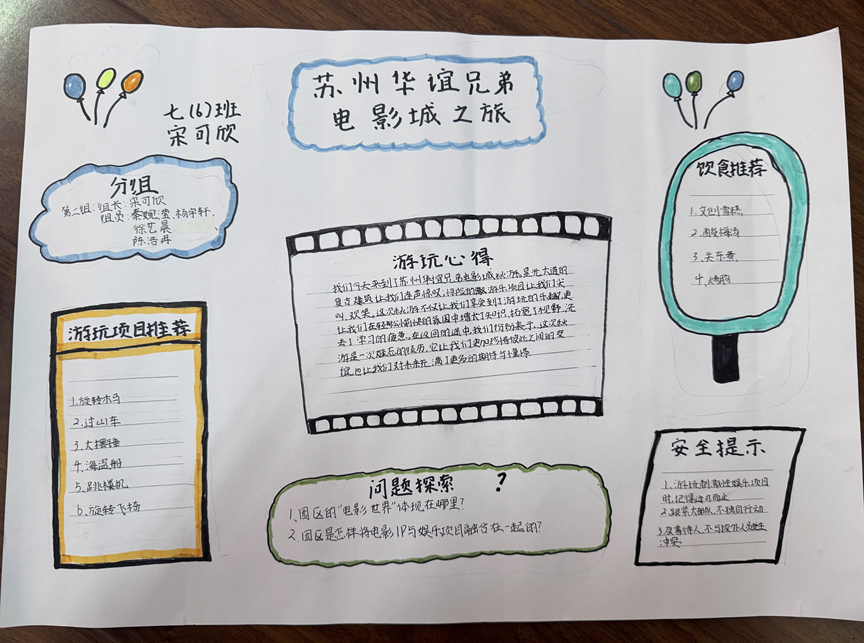 苏州华谊兄弟
电影城之旅
七(6)班
宋可欣
分组
第二组: 组长: 宋可欣
组员: 秦婉滢、杨宇轩、
徐艺晨
陈浩冉
饮食推荐
1、文创雪糕
2、酸梅汤
3、关东煮
4、烤肠
游玩心得
我们今天来到了苏州华谊兄弟电影城秋游。星光大道的
复古建筑让我们连声惊叹,惊险的游乐项目让我们尖
叫、欢笑。这次秋游不仅让我们享受到了游玩的乐趣,更
让我们在轻松愉快的氛围中增长了知识,拓宽了视野,洗
去了学习的疲惫。在返回的途中,我们纷纷表示,这次秋
游是一次难忘的经历,它让我们更加珍惜彼此之间的友
谊,也让我们对未来充满了更多的期待与憧憬
游玩项目推荐
1、旋转木马
2、过山车
3、大摆锤
4、海盗船
5、跳楼机
6、旋转飞椅
问题探索 ?
1、园区的“电影世界”体现在哪里?
2、园区是怎样将电影IP与娱乐项目融合在一起的?
安全提示
1、游玩刺激性娱乐项目
时,记得适可而止
2、跟紧大部队,不独自行动
3、友善待人,不与校外人员发生
冲突